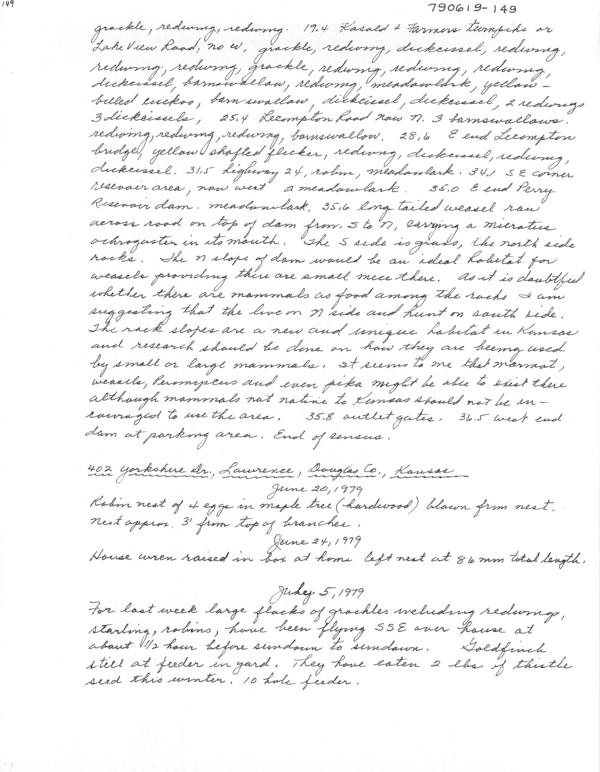 149
790619-149
grackle, redwing, redwing. 19.4 Kasold & Farmers turnpike or
Lake View Road, no W, grackle, redwing, dickcissel, redwing,
redwing, redwing, grackle, redwing, redwing, redwing,
dickcissel, barnswallow, redwing, meadowlark, yellow-
billed cuckoo, barn swallow, dickcissel, dickcissel, 2 redwings
3 dickcissels, 25.4 Lecompton Road now N. 3 barnswallows.
redwing, redwing, redwing, barnswallow. 28.6 E end Lecompton
bridge, yellow shafted flicker, redwing, dickcissel, redwing,
dickcissel. 31.5 highway 24, robin, meadowlark. 34.1 SE corner
reservoir area, now west 2 meadowlark. 35.0 E end Perry
Reservoir dam. meadowlark. 35.6 long tailed weasel ran
across road on top of dam from S to N, carrying a microtus
ochrogaster in its mouth. The S side is grass, the north side
rocks. The N slope of dam would be an ideal habitat for
weasels providing there are small mice there. As it is doubtful
whether there are mammals as food among the rocks I am
suggesting that the live on N side and hunt on south side.
The rock slopes are a new and unique habitat in Kansas
and research should be done on how they are being used
by small or large mammals. It seems to me that marmot,
weasels, Peromyscus and even pika might be able to exist there
although mammals not native to Kansas should not be in-
couraged to use the area. 35.8 outlet gates. 36.5 west end
dam at parking area. End of census.
402 Yorkshire Dr., Lawrence, Douglas Co., Kansas
June 20, 1979
Robin nest of 4 eggs in maple tree (hardwood) blown from nest.
Nest approx. 3' from top of branches.
June 24, 1979
House wren raised in box at home left nest at 86 mm total length.
July 5, 1979
For last week large flocks of grackles including redwings,
starling, robins, have been flying SSE over house at
about 1/2 hour before sundown to sundown. Goldfinch
still at feeder in yard. They have eaten 2 lbs of thistle
seed this winter. 10 hole feeder.